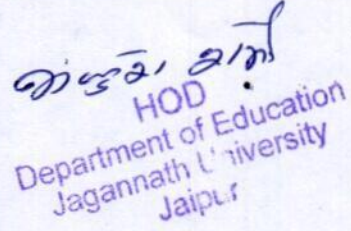 HOD
Department of Education
Jagannath University
Jaipur